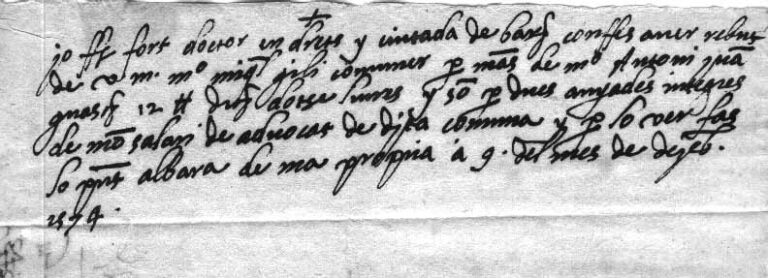 +
jo ff fort doctor en drets y ciutada de barÿ confes aver rebut
de v. m. mº miql gili comuner p mãs de mº Antoni juã
guasch 12 ₶ dich dotse liures y sõ p dues anyades integres
de mõ salari de advocat de dita comuna y p lo ver fas
lo pnt albara de ma propia a 9. del mes de dezeb.
1574.